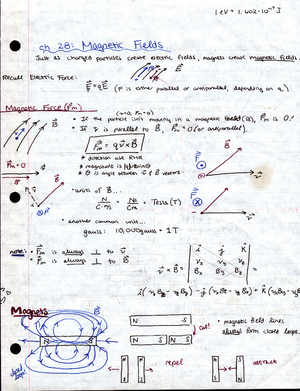 1 eV = 1.602·10⁻¹⁹ J
ch 28: Magnetic Fields
Just as charged particles create electric fields, magnets create magnetic fields.
Recall Electric Force:
F = qE (F is either parallel or antiparallel, depending on q)
E
Magnetic Force (Fm)
(v=0, Fm=0)
• If the particle isn't moving in a magnetic field (B), Fm is 0!
• If v is parallel to B, Fm = 0! (or antiparallel).
B
Fm = qv×B
* direction use RHR
* θ is angle between v & B vectors
Fm = 0
• units of B...
N/C·m/s = N/Am = Tesla (T)
• another common unit...
gauss: 10,000 gauss = 1T
note: • Fm is always ⊥ to v
• Fm is always ⊥ to B
v × B = | i j k
vx vy vz
Bx By Bz | =
Magnets
B
N S
cut!
N S N S
• magnetic field lines always form closed loops.
repel
attract